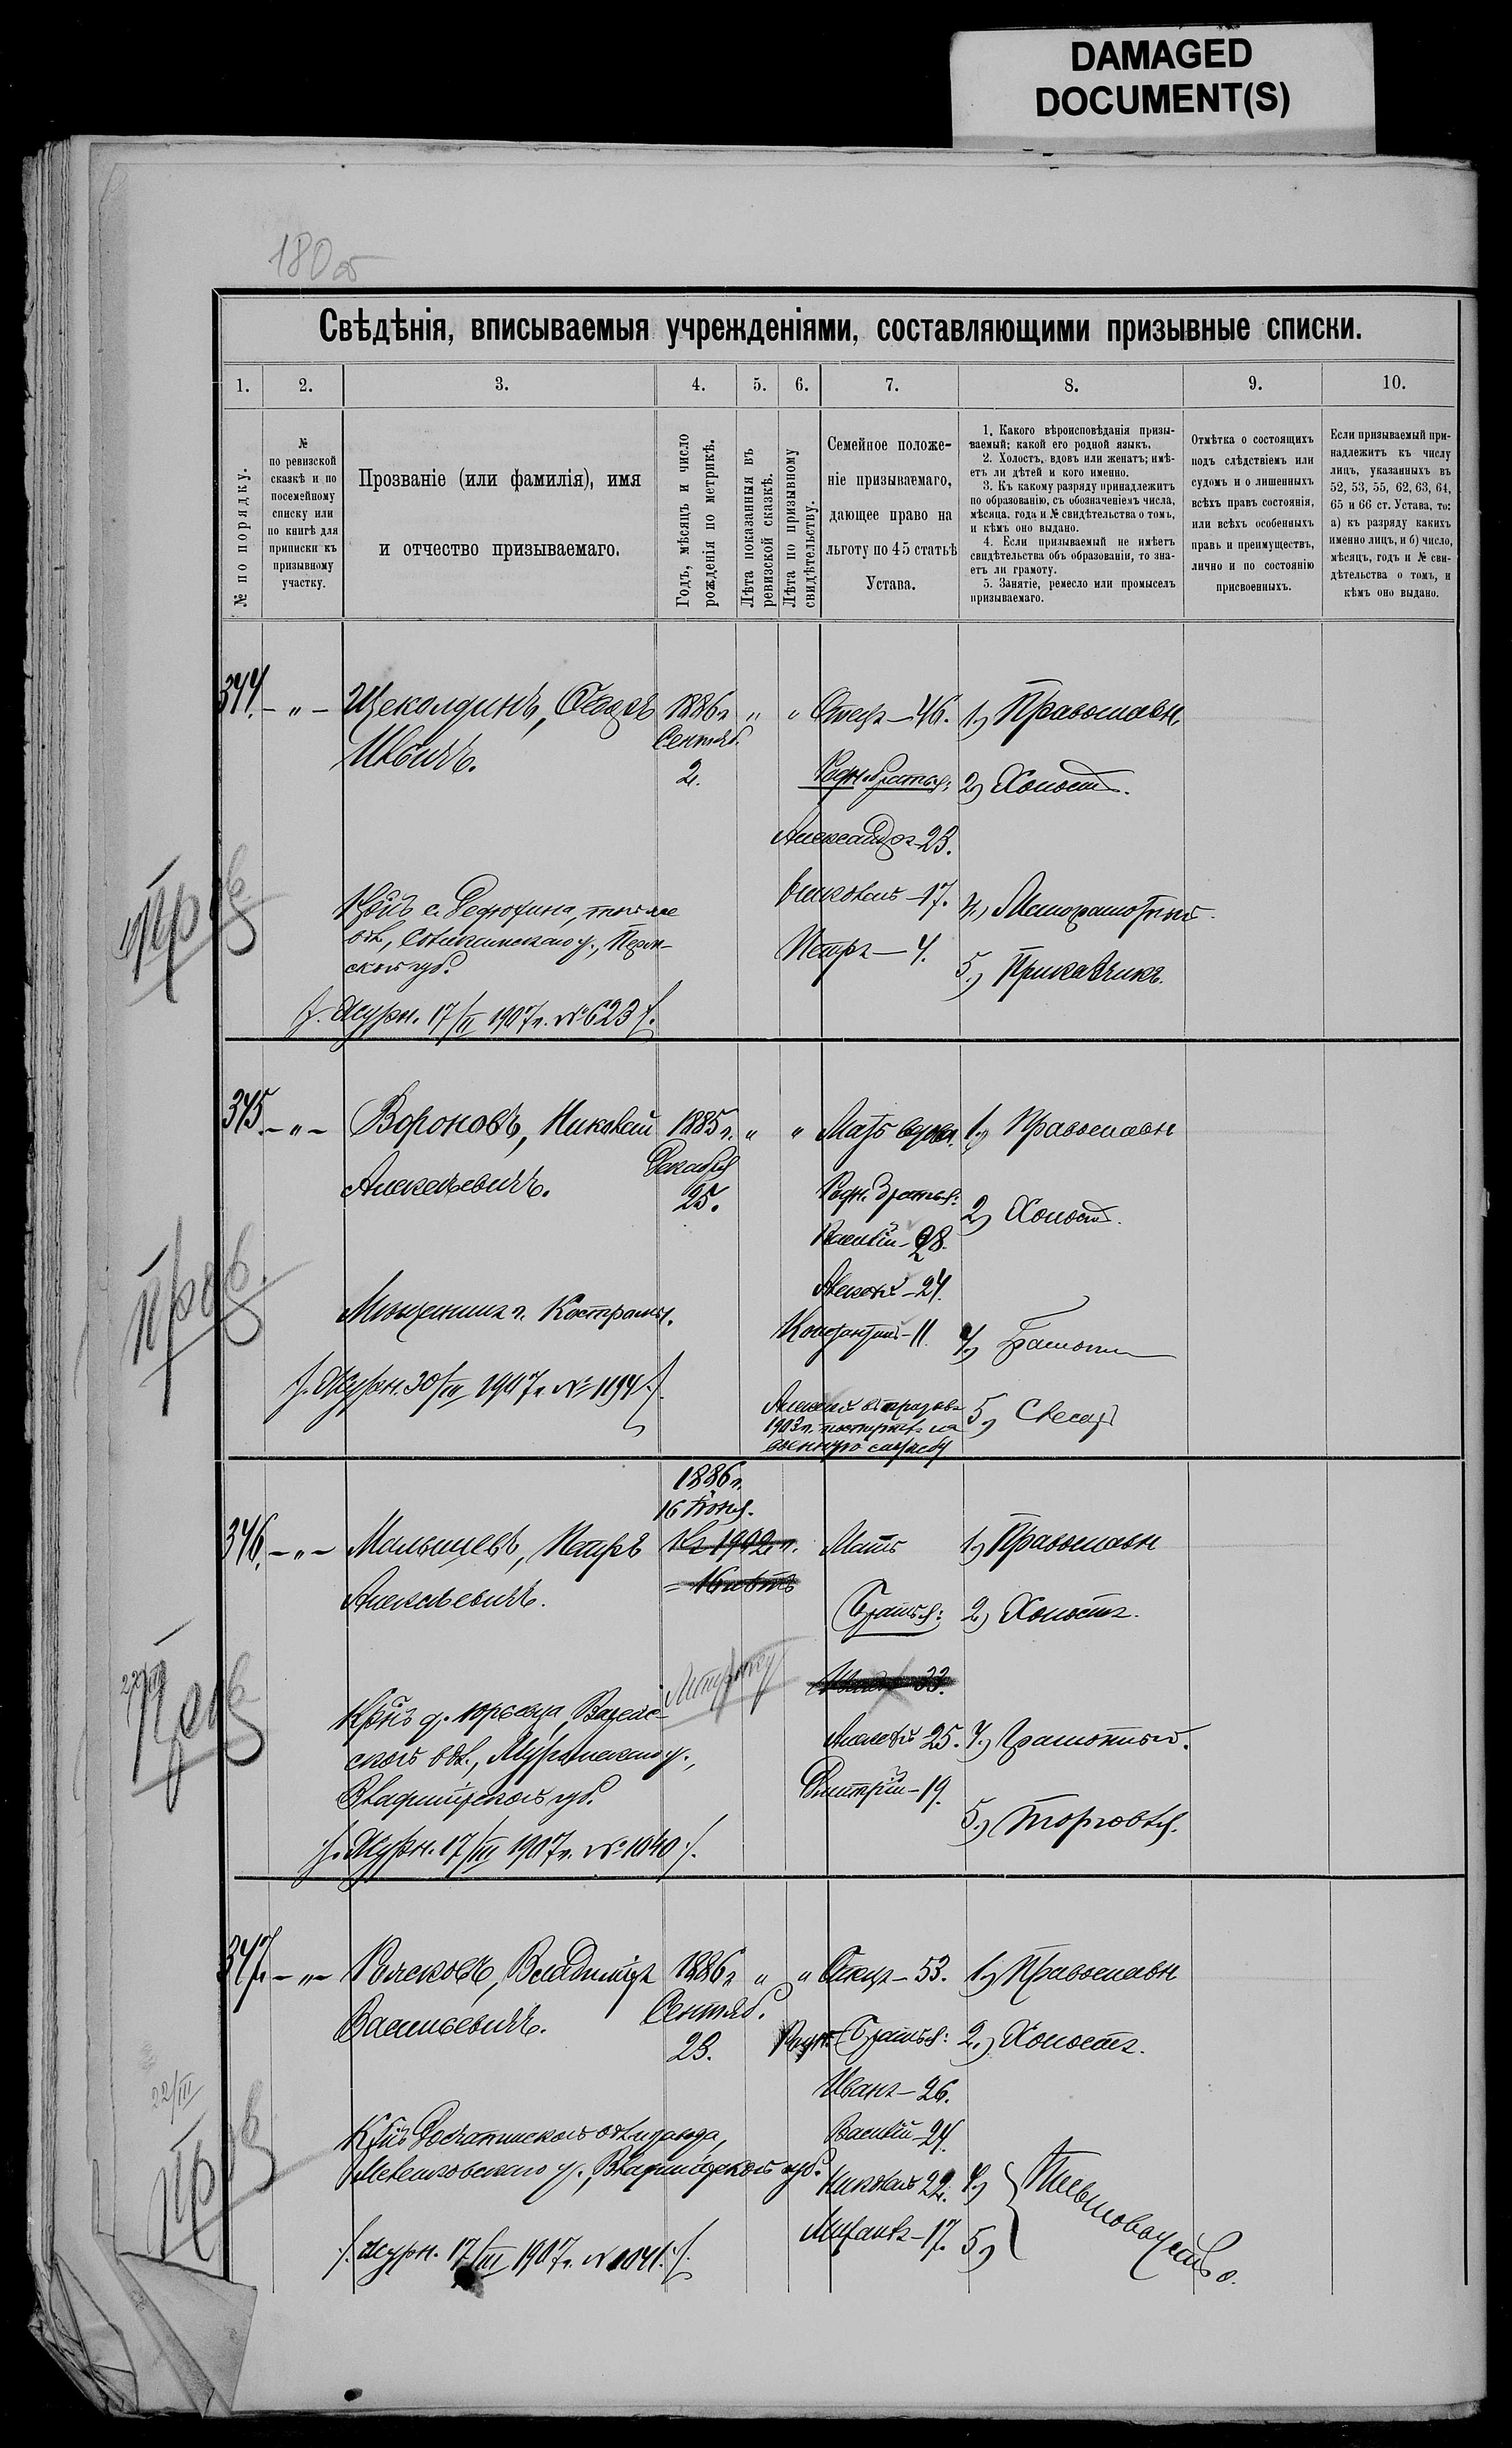 DAMAGED
DOCUMENT(S)
180 об
Свѣдѣнія, вписываемыя учрежденіями, составляющими призывные списки.
1.
2.
3.
4.
5.
6.
7.
8.
9.
10.
№ по порядку.
№
по ревизской
сказкѣ и по
посемейному
списку или
по книгѣ для
приписки къ
призывному
участку.
Прозваніе (или фамилія), имя
и отчество призываемаго.
Годъ, мѣсяцъ и число
рожденія по метрикѣ.
Лѣта показанныя въ
ревизской сказкѣ.
Лѣта по призывному
свидѣтельству.
Семейное положе-
ніе призываемаго,
дающее право на
льготу по 45 статьѣ
Устава.
1. Какого вѣроисповѣданія призы-
ваемый; какой его родной языкъ.
2. Холостъ, вдовъ или женатъ; имѣ-
етъ ли дѣтей и кого именно.
3. Къ какому разряду принадлежитъ
по образованію, съ обозначеніемъ числа,
мѣсяца, года и № свидѣтельства о томъ,
и кѣмъ оно выдано.
4. Если призываемый не имѣетъ
свидѣтельства объ образованіи, то зна-
етъ ли грамоту.
5. Занятіе, ремесло или промыселъ
призываемаго.
Отмѣтка о состоящихъ
подъ слѣдствіемъ или
судомъ и о лишенныхъ
всѣхъ правъ состоянія,
или всѣхъ особенныхъ
правъ и преимуществъ,
лично и по состоянію
присвоенныхъ.
Если призываемый при-
надлежитъ къ числу
лицъ, указанныхъ въ
52, 53, 55, 62, 63, 64,
65 и 66 ст. Устава, то:
а) къ разряду какихъ
именно лицъ, и б) число,
мѣсяцъ, годъ и № сви-
дѣтельства о томъ, и
кѣмъ оно выдано.
344. - " - Щеколдинъ, 1886г " " Отецъ - 46. 1) Православн.
Сентяб.
2.
Родн. братья: 2) Холост.
Александръ - 23.
Николай - 17. 4) Малограмотный
Петръ - 4. 5.) Приказчикъ.
Пров
Крнъ с. Дедюхина, той же
вол., Соликамскаго у., Перм-
ской губ.
/. Журн. 17/II 1907г. № 623 /.
345. - " - Вороновъ, Николай 1885г. " " Мать вдова. 1.) Православн
Алексѣевичъ. Декабря
25.
Родн. братья: 2) Холост.
Василій - 28.
Алексѣй - 24.
Константинъ - 11. 4.) Грамотн
Пров.
Мѣщанинъ г. Костромы.
/. Журн. 30/III 1907г. № 1194 /.
Алексѣй въ призывъ
1903г. поступилъ на
военную службу
5.) Слесарь
1886г.
16 Іюня.
346. - " - Малышевъ, Петръ Въ 1902г. Мать 1) Православн
Алексѣевичъ. = 16 лѣтъ
Братья: 2) Холостъ.
33.
Алексѣй 25. 4.) Грамотный.
Дмитрій - 19.
5.) Торговля.
22/III
Пров
Крнъ д. Юрьевца,
ской вол., Муромскаго у.,
Владимірской губ.
/. Журн. 17/III 1907г. № 1040 /.
347. - " - Владиміръ 1886г " " Отецъ - 53. 1) Православн
Васильевичъ. Сентяб.
23.
Родн. Братья: 2.) Холостъ.
Иванъ - 26.
Василій - 24.
Николай 22. 4)
Михаилъ - 17. 5)
22/III
Пров
Крнъ Досчатинской вол. и завода,
Меленковскаго у., Владимірской губ.
/. Журн. 17/III 1907г. № 1041. /.